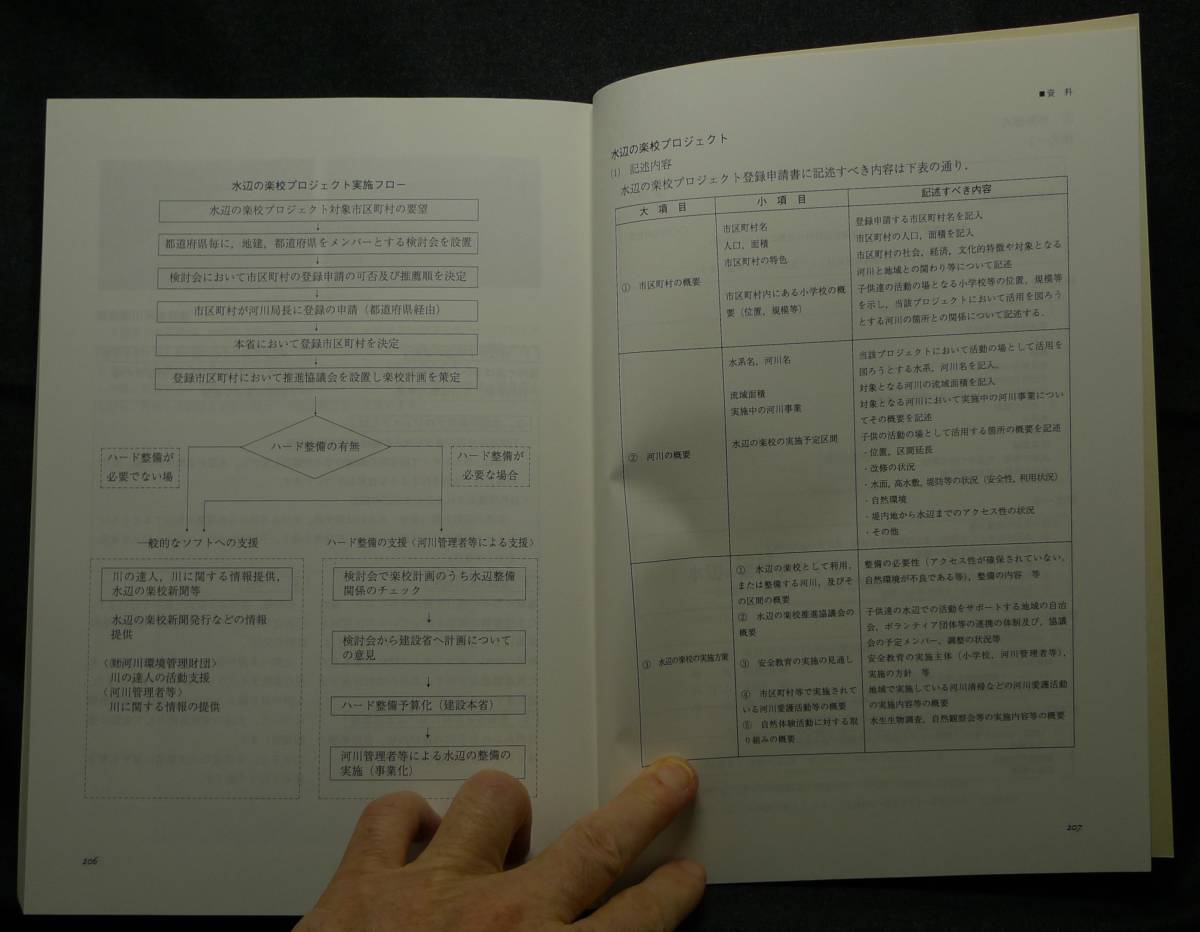 水辺の楽校プロジェクト実施フロー
水辺の楽校プロジェクト対象市区町村の要望
都道府県毎に,地建,都道府県をメンバーとする検討会を設置
検討会において市区町村の登録申請の可否及び推薦順を決定
市区町村が河川局長に登録の申請(都道府県経由)
本省において登録市区町村を決定
登録市区町村において推進協議会を設置し楽校計画を策定
ハード整備の有無
ハード整備が
必要でない場
ハード整備が
必要な場合
一般的なソフトへの支援
川の達人,川に関する情報提供,
水辺の楽校新聞等
水辺の楽校新聞発行などの情報
提供
〈㈶河川環境管理財団〉
川の達人の活動支援
〈河川管理者等〉
川に関する情報の提供
ハード整備の支援〈河川管理者等による支援〉
検討会で楽校計画のうち水辺整備
関係のチェック
検討会から建設省へ計画について
の意見
ハード整備予算化(建設本省)
河川管理者等による水辺の整備の
実施(事業化)
206
■資 料
水辺の楽校プロジェクト
(1) 記述内容
水辺の楽校プロジェクト登録申請書に記述すべき内容は下表の通り.
大 項 目
小 項 目
記述すべき内容
① 市区町村の概要
市区町村名
人口,面積
市区町村の特色
市区町村内にある小学校の概
要(位置,規模等)
登録申請する市区町村名を記入
市区町村の人口,面積を記入
市区町村の社会,経済,文化的特徴や対象となる
河川と地域との関わり等について記述
子供達の活動の場となる小学校等の位置,規模等
を示し,当該プロジェクトにおいて活用を図ろう
とする河川の箇所との関係について記述する.
② 河川の概要
水系名,河川名
流域面積
実施中の河川事業
水辺の楽校の実施予定区間
当該プロジェクトにおいて活動の場として活用を
図ろうとする水系,河川名を記入.
対象となる河川の流域面積を記入
対象となる河川において実施中の河川事業につい
てその概要を記述
子供の活動の場として活用する箇所の概要を記述
・位置,区間延長
・改修の状況
・水面,高水敷,堤防等の状況(安全性,利用状況)
・自然環境
・堤内地から水辺までのアクセス性の状況
・その他
③ 水辺の楽校の実施方策
① 水辺の楽校として利用,
または整備する河川,及びそ
の区間の概要
② 水辺の楽校推進協議会の
概要
③ 安全教育の実施の見通し
④ 市区町村等で実施されて
いる河川愛護活動等の概要
⑤ 自然体験活動に対する取
り組みの概要
整備の必要性(アクセス性が確保されていない,
自然環境が不良である等),整備の内容 等
子供達の水辺での活動をサポートする地域の自治
会,ボランティア団体等の連携の体制及び,協議
会の予定メンバー,調整の状況等
安全教育の実施主体(小学校,河川管理者等),
実施の方針 等
地域で実施している河川清掃などの河川愛護活動
の実施内容等の概要
水生生物調査,自然観察会等の実施内容等の概要
207